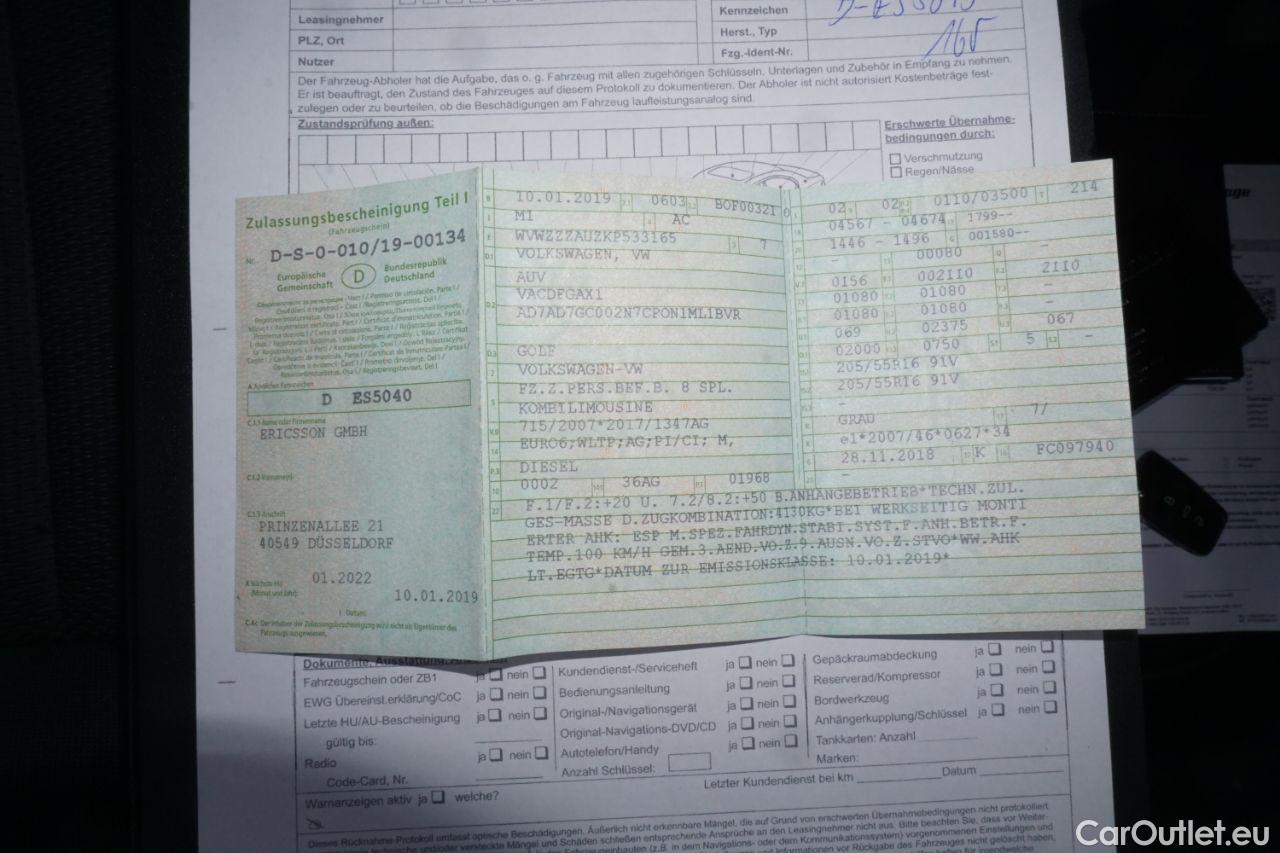 Leasingnehmer
PLZ, Ort
Nutzer
Kennzeichen
Herst., Typ
Fzg.-Ident-Nr.
165
Der Fahrzeug-Abholer hat die Aufgabe, das o. g. Fahrzeug mit allen zugehörigen Schlüsseln, Unterlagen und Zubehör in Empfang zu nehmen.
Er ist beauftragt, den Zustand des Fahrzeuges auf diesem Protokoll zu dokumentieren. Der Abholer ist nicht autorisiert Kostenbeträge fest-
zulegen oder zu beurteilen, ob die Beschädigungen am Fahrzeug laufleistungsanalog sind.
Zustandsprüfung außen:
Erschwerte Übernahme-
bedingungen durch:
Verschmutzung
Regen/Nässe
Zulassungsbescheinigung Teil I
(Fahrzeugschein)
Nr. D-S-0-010/19-00134
Europäische Gemeinschaft
D
Bundesrepublik Deutschland
D ES5040
C.1.1 Name oder Firmenname
ERICSSON GMBH
C.1.2 Vorname(n)
C.1.3 Anschrift
PRINZENALLEE 21
40549 DÜSSELDORF
01.2022
(Monat und Jahr)
10.01.2019
I Datum:
C.4c Der Inhaber der Zulassungsbescheinigung wird nicht als Eigentümer des
Fahrzeugs ausgewiesen.
10.01.2019 0603 BOF00321 0
M1 AC
WVWZZZAUZKP533165 7
VOLKSWAGEN, VW
AUV
VACDFGAX1
AD7AD7GC002N7CPON1ML1BVR
GOLF
VOLKSWAGEN-VW
FZ.Z.PERS.BEF.B. 8 SPL.
KOMBILIMOUSINE
715/2007*2017/1347AG
EURO6;WLTP;AG;PI/CI; M,
DIESEL
0002 36AG 01968
02 02 0110/03500 214
04567 - 04674 1799--
1446 - 1496 001580--
- 00080 -
0156 002110 2110
01080 01080 -
01080 01080 -
069 02375 067
02000 0750 5 -
205/55R16 91V
205/55R16 91V
-
-
GRAU 7/
e1*2007/46*0627*34
28.11.2018 K FC097940
-
F.1/F.2:+20 U. 7.2/8.2:+50 B.ANHÄNGEBETRIEB*TECHN.ZUL.
GES-MASSE D.ZUGKOMBINATION:4130KG*BEI WERKSEITIG MONTI
ERTER AHK: ESP M.SPEZ.FAHRDYN.STABI.SYST.F.ANH.BETR.F.
TEMP.100 KM/H GEM.3.AEND.VO.Z.9.AUSN.VO.Z.STVO*WW.AHK
LT.EGTG*DATUM ZUR EMISSIONSKLASSE: 10.01.2019*
Dokumente, Ausstattung,
Fahrzeugschein oder ZB1 ja nein
EWG Übereinst.erklärung/CoC ja nein
Letzte HU/AU-Bescheinigung ja nein
gültig bis:
Radio ja nein
Code-Card, Nr.
Kundendienst-/Serviceheft ja nein
Bedienungsanleitung ja nein
Original-/Navigationsgerät ja nein
Original-Navigations-DVD/CD ja nein
Autotelefon/Handy ja nein
Anzahl Schlüssel:
Gepäckraumabdeckung ja nein
Reserverad/Kompressor ja nein
Bordwerkzeug ja nein
Anhängerkupplung/Schlüssel ja nein
Tankkarten: Anzahl
Marken:
Letzter Kundendienst bei km Datum
Warnanzeigen aktiv ja welche?
Dieses Rücknahme-Protokoll umfasst optische Beschädigungen. Äußerlich nicht erkennbare Mängel, die auf Grund von erschwerten Übernahmebedingungen nicht protokolliert
CarOutlet.eu